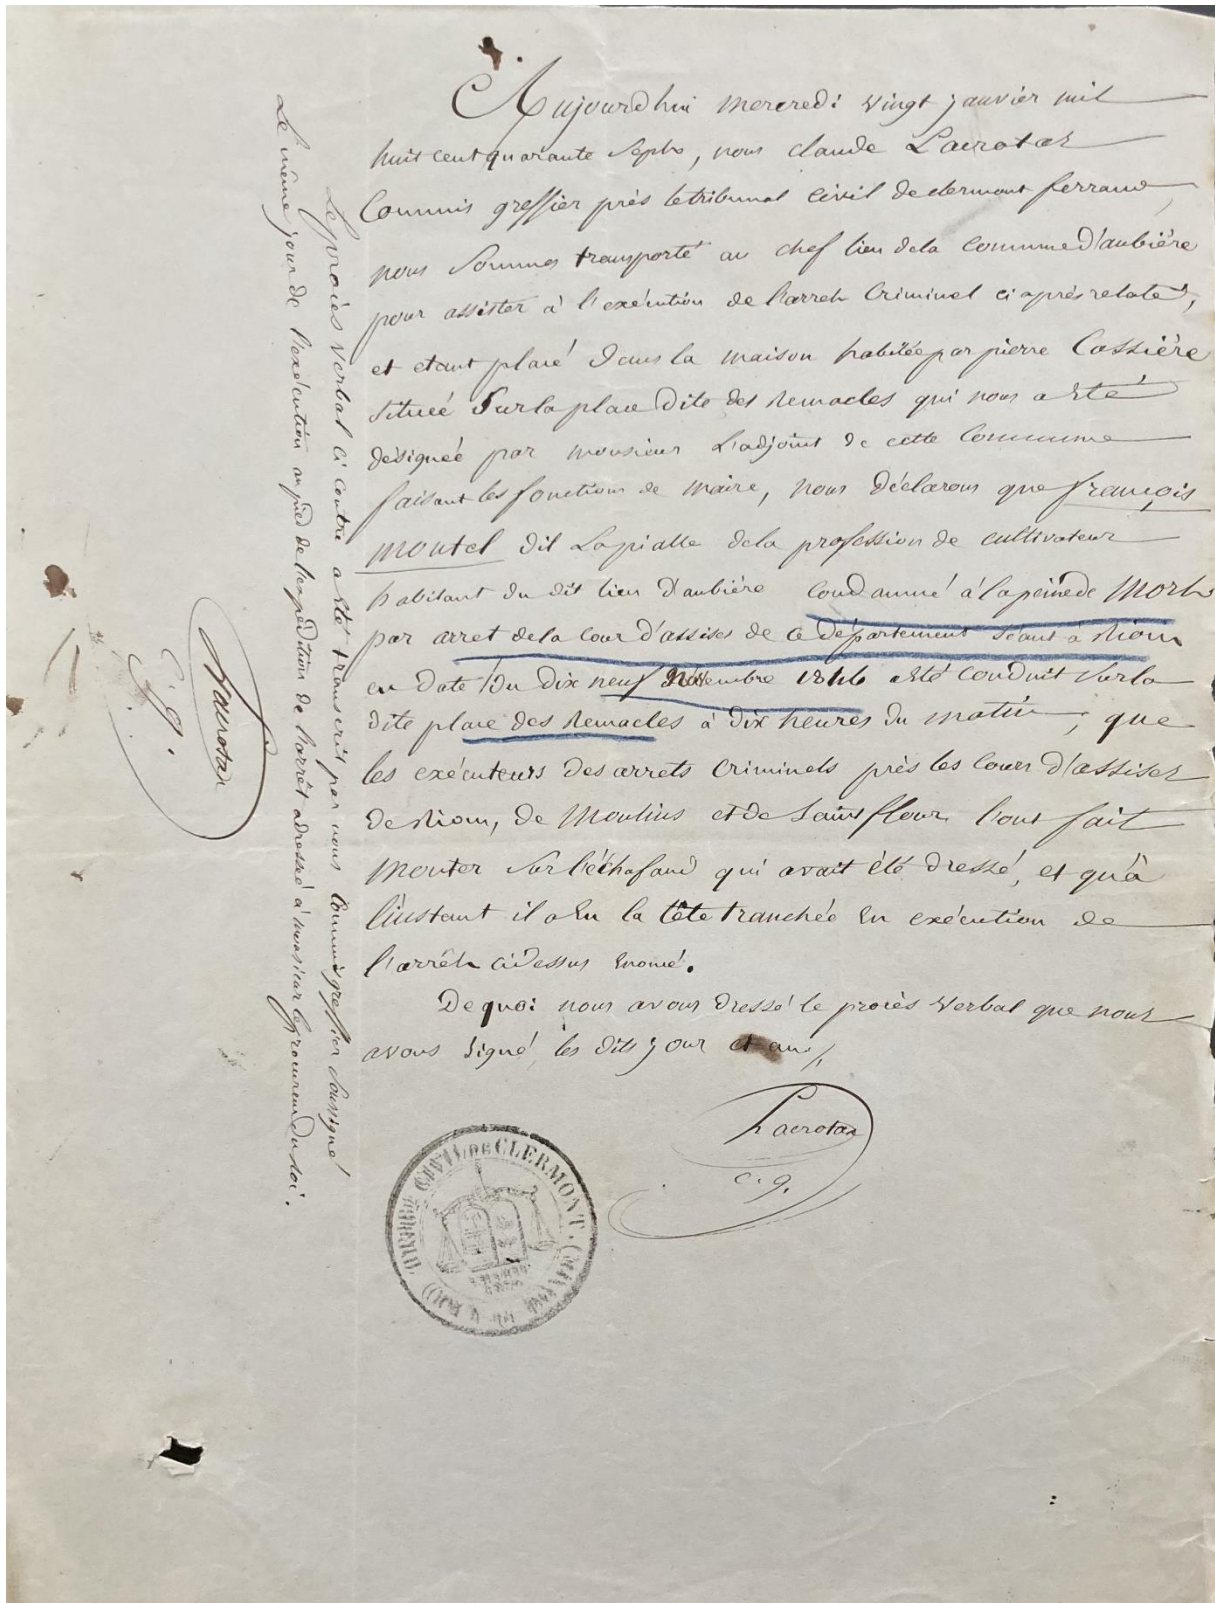 Aujourd'hui mercredi vingt janvier mil
huit cent quarante sept, nous claude Lacrotas
Commis greffier près le tribunal civil de clermont ferrand,
nous sommes transporté au chef lieu de la commune d'aubière
pour assister à l'exécution de l'arret Criminel ci après relaté,
et etant placé dans la maison habitée par pierre Cassière
située Sur la place dite des Ramacles qui nous a été
désignée par monsieur L'adjoint de cette Commune
faisant les fonctions de maire, nous déclarons que françois
montel dit Lapialle de la profession de cultivateur
habitant du dit lieu d'aubière condamné à la peine de Mort
par arret de la cour d'assises de ce département séant à Riom
en date du dix neuf Novembre 1846 a été conduit sur la
dite place des Ramacles à dix heures du matin, que
les exécuteurs des arrets Criminels près les Cours d'assises
de Riom, de Moulins et de Saint flour l'ont fait
Monter sur l'échafaud qui avait été dressé, et qu'à
l'instant il a eu la tête tranchée en exécution de
l'arrêt ci dessus énoncé.
De quoi nous avons dressé le procès verbal que nous
avons signé, les dits jour et an,
Lacrotas
c. g.
Le procès verbal ci contre a été transcrit par nous Commis greffier soussigné
Le même jour de l'exécution au pied de l'expédition de l'arrêt adressé à monsieur le procureur du roi.
Lacrotas
C. g.
CIVIL DE CLERMONT